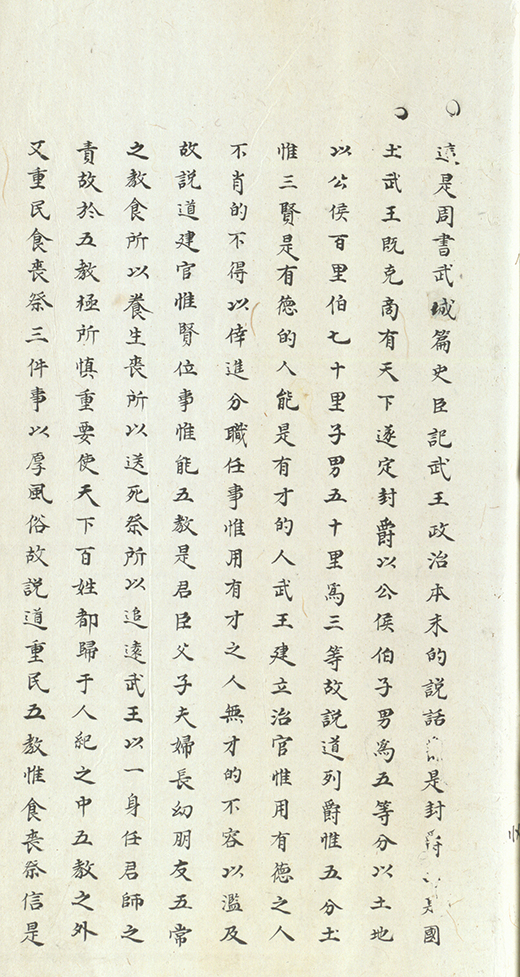 這是周書武城篇史臣記武王政治本末的說話是封爵國
土武王既克商有天下遂定封爵以公侯伯子男為五等分以土地
以公侯百里伯七十里子男五十里為三等故說道列爵惟五分土
惟三賢是有德的人能是有才的人武王建立治官惟用有德之人
不肖的不得以倖進分職任事惟用有才之人無才的不容以濫及
故說道建官惟賢位事惟能五教是君臣父子夫婦長幼朋友五常
之教食所以養生喪所以送死祭所以追遠武王以一身任君師之
責故於五教極所慎重要使天下百姓都歸于人紀之中五教之外
又重民食喪祭三件事以厚風俗故說道重民五教惟食喪祭信是